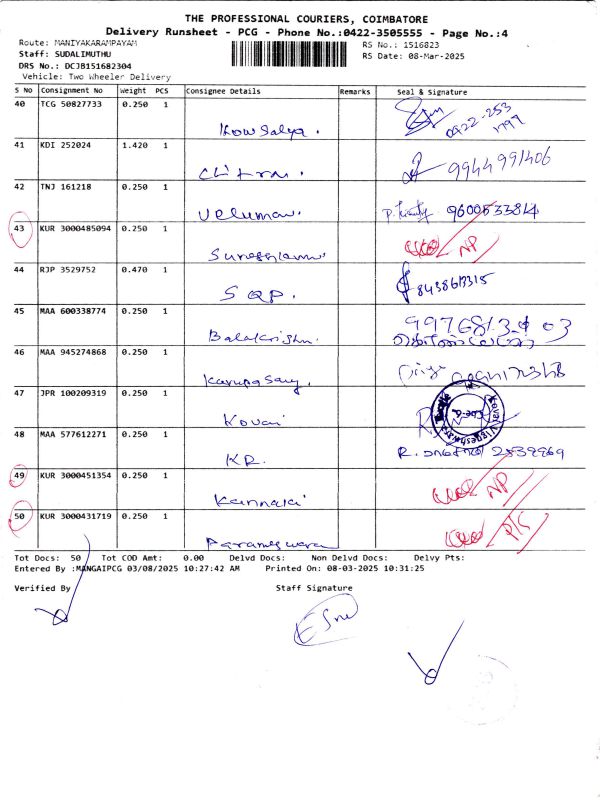 THE PROFESSIONAL COURIERS, COIMBATORE
Delivery Runsheet - PCG - Phone No.:0422-3505555 - Page No.:4
Route: MANIYAKARAMPAYAM
RS No.: 1516823
Staff: SUDALIMUTHU
RS Date: 08-Mar-2025
DRS No.: DCJB151682304
Vehicle: Two Wheeler Delivery
S No Consignment No Weight PCS Consignee Details Remarks Seal & Signature
40 TCG 50827733 0.250 1 Kowsalya. 0422-253
41 KDI 252024 1.420 1 Chitra. 9944991406
42 TNJ 161218 0.250 1 Veluman. 9600533814
43 KUR 3000485094 0.250 1 NP
44 RJP 3529752 0.470 1 SQP. 8438613315
45 MAA 600338774 0.250 1 Balakrishn.
46 MAA 945274868 0.250 1 Karupasamy.
47 JPR 100209319 0.250 1 Kovai
48 MAA 577612271 0.250 1 KR. R. 2539969
49 KUR 3000451354 0.250 1 Kannaki NP
50 KUR 3000431719 0.250 1 Parameswara P/S
Tot Docs: 50 Tot COD Amt: 0.00 Delvd Docs: Non Delvd Docs: Delvy Pts:
Entered By :MANGAIPCG 03/08/2025 10:27:42 AM Printed On: 08-03-2025 10:31:25
Verified By Staff Signature